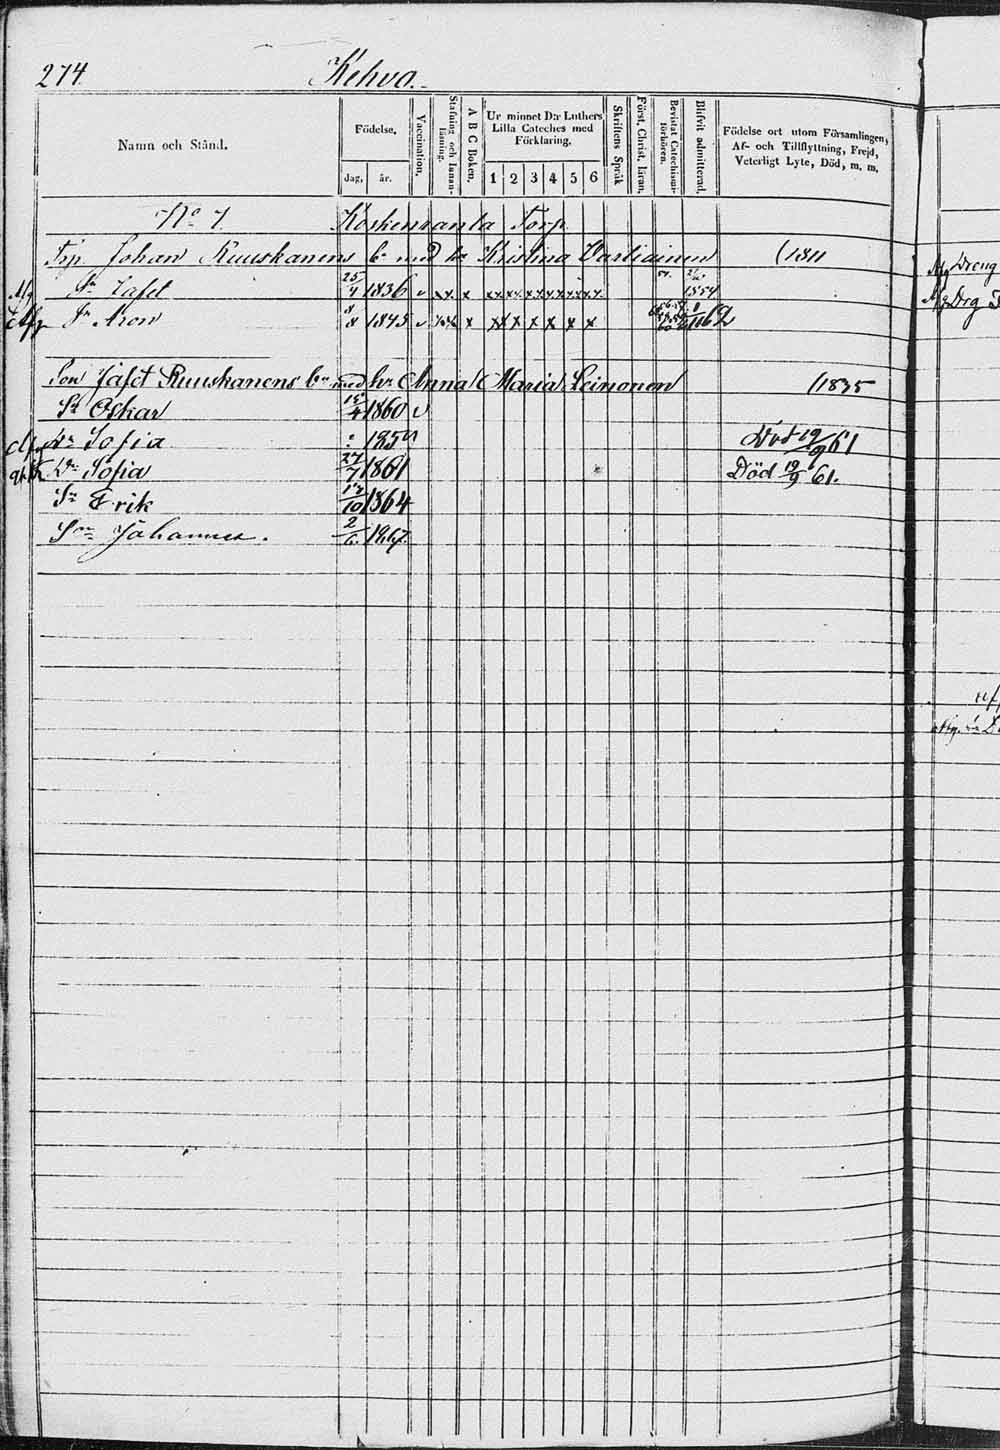 274. Kehvo.
Namn och Stånd.
Födelse,
dag, år.
Vaccination.
Stafning och Innan-läsning.
A B C Boken.
Ur minnet D:r Luthers Lilla Cateches med Förklaring.
1 2 3 4 5 6
Skriftens Språk
Först. Christ. läran.
Bevistat Catechismi-förhören.
Blifvit admitterad.
Födelse ort utom Församlingen, Af- och Tillflyttning, Frejd, Veterligt Lyte, Död, m. m.
No 7 Koskenranta Torp
Trp Johan Ruuskanens b. med h. Kristina Vartiainen (1811
Sn Jafet 25/7 1836 v x x. x x x. x x x x x x x. 1854
Sn Aron 8/8 1843 v x x x x x x x x 62
Son Jafet Ruuskanens bn med hu Anna Maria Leinonen (1835
Sn Oskar 15/4 1860 v
Dr Sofia 185 Död 19/9 61
Dr Sofia 27/7 1861 Död 19/9 61.
Sn Erik 17/10 1864
Son Johannes. 2/6. 1867.
Drg